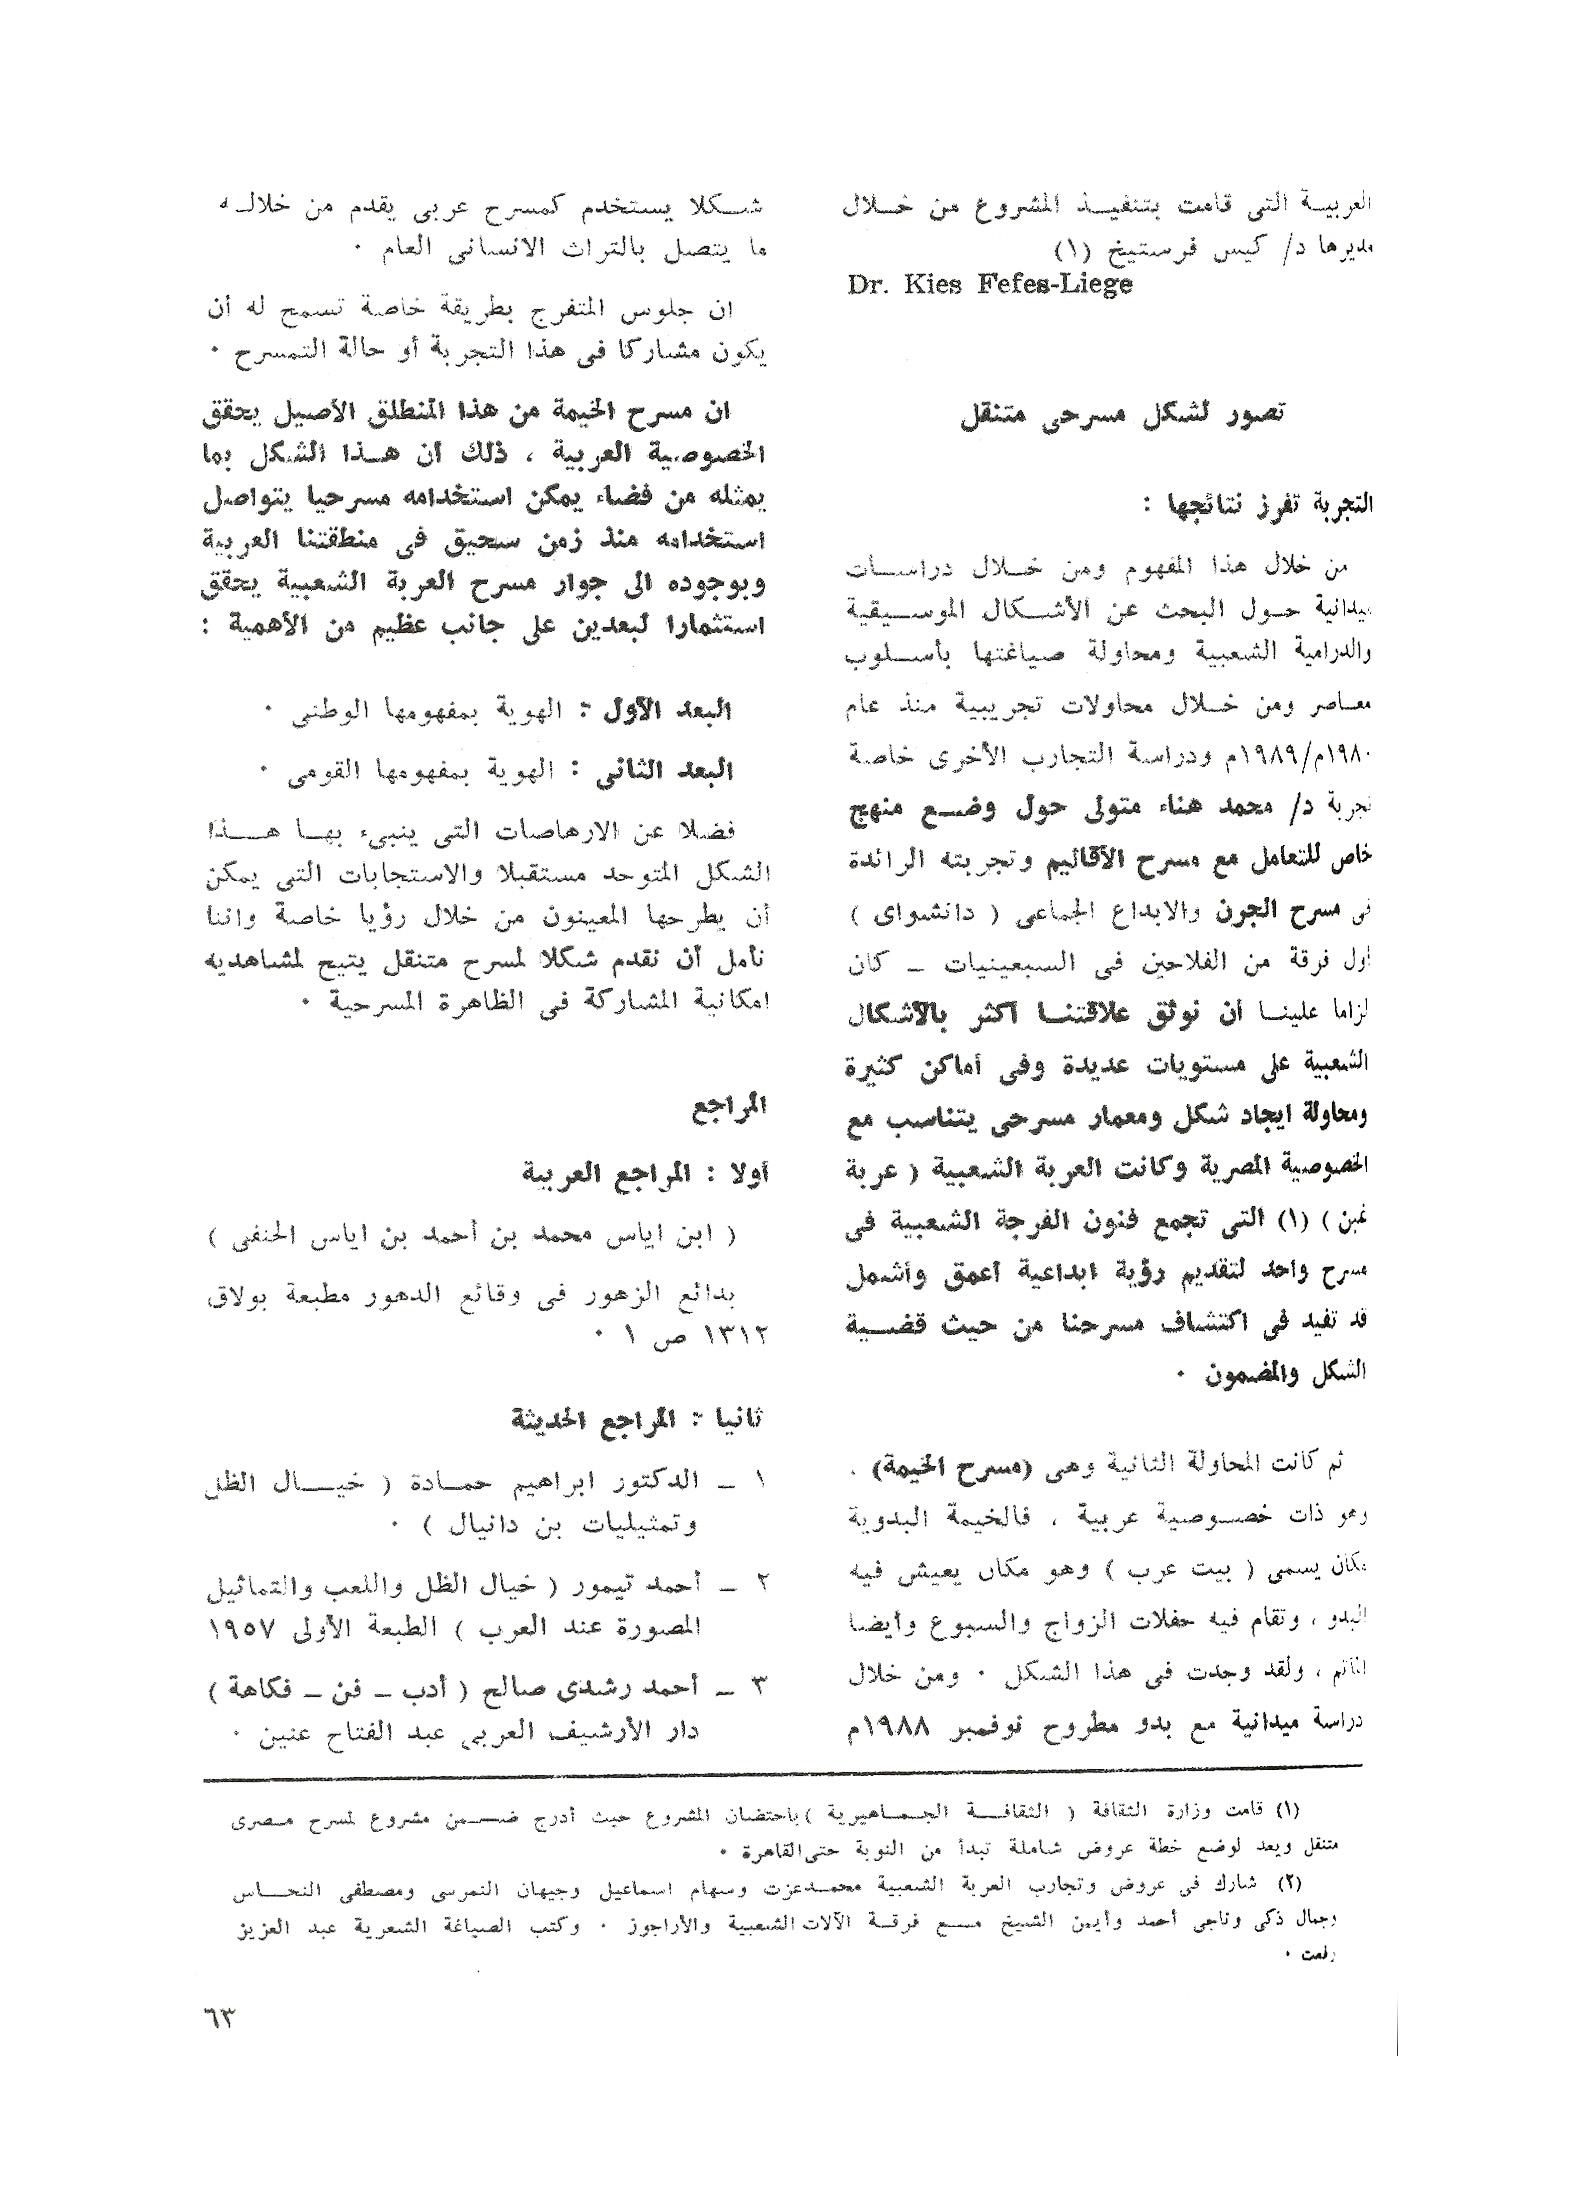 العربيـة التى قامت بتنفيـذ المشروع من خـلال
مديرها د/ كيس فرستيخ (١)
Dr. Kies Fefes-Liege
تصور لشكل مسرحى متنقل
التجربة تفرز نتائجها :
من خلال هذا المفهوم ومن خـلال دراسـات
ميدانية حـول البحث عن الأشـكال الموسـيقية
والدرامية الشعبية ومحاولة صياغتها بأسـلوب
معـاصر ومن خـلال محاولات تجريبية منذ عام
١٩٨٠م/١٩٨٩م ودراسة التجارب الأخرى خاصة
تجربة د/ محمد هناء متولى حول وضـع منهج
خاص للتعامل مع مسرح الأقاليم وتجربته الرائدة
فى مسرح الجرن والابداع الجماعى ( دانشواى )
أول فرقة من الفلاحين فى السبعينيات ـ كان
لزاما علينـا أن نوثق علاقتنـا أكثر بالأشكال
الشعبية على مستويات عديدة وفى أماكن كثيرة
ومحاولة ايجاد شكل ومعمار مسرحى يتناسب مع
الخصوصية المصرية وكانت العربة الشعبية ( عربة
غبن ) (١) التى تجمع فنون الفرجة الشعبية فى
مسرح واحد لتقديم رؤية ابداعية أعمق وأشمل
قد تفيد فى اكتشاف مسرحنا من حيث قضـية
الشكل والمضمون ٠
ثم كانت المحاولة الثانية وهى (مسرح الخيمة) .
وهو ذات خصـوصية عربية ، فالخيمة البدوية
مكان يسمى ( بيت عرب ) وهو مكان يعيش فيه
البدو ، وتقام فيه حفلات الزواج والسبوع وأيضا
المآتم ، ولقد وجدت فى هذا الشكل ٠ ومن خلال
دراسة ميدانية مع بدو مطروح نوفمبر ١٩٨٨م
شـكلا يستخدم كمسرح عربى يقدم من خلالـه
ما يتصل بالتراث الانسانى العام ٠
ان جلوس المتفرج بطريقة خاصة تسمح له أن
يكون مشاركا فى هذا التجربة أو حالة التمسرح ٠
ان مسرح الخيمة من هذا المنطلق الأصيل يحقق
الخصوصية العربية ، ذلك أن هـذا الشكل بما
يمثله من فضاء يمكن استخدامه مسرحيا يتواصل
استخدامه منذ زمن سحيق فى منطقتنا العربية
وبوجوده الى جوار مسرح العربة الشعبية يحقق
استثمارا لبعدين على جانب عظيم من الأهمية :
البعد الأول : الهوية بمفهومها الوطنى ٠
البعد الثانى : الهوية بمفهومها القومى ٠
فضلا عن الارهاصات التى ينبىء بهـا هـذا
الشكل المتوحد مستقبلا والاستجابات التى يمكن
أن يطرحها المعينون من خلال رؤيا خاصة واننا
نأمل أن نقدم شكلا لمسرح متنقل يتيح لمشاهديه
امكانية المشاركة فى الظاهرة المسرحية ٠
المراجع
أولا : المراجع العربية
( ابن اياس محمد بن أحمد بن اياس الحنفى )
بدائع الزهور فى وقائع الدهور مطبعة بولاق
١٣١٢ ص ١ ٠
ثانيا : المراجع الحديثة
١ ـ الدكتور ابراهيم حمـادة ( خيـال الظل
وتمثيليات بن دانيال ) ٠
٢ ـ أحمد تيمور ( خيال الظل واللعب والتماثيل
المصورة عند العرب ) الطبعة الأولى ١٩٥٧
٣ ـ أحمد رشدى صالح ( أدب ـ فن ـ فكاهة )
دار الأرشيف العربى عبد الفتاح عنين ٠
(١) قامت وزارة الثقافة ( الثقافـة الجـماهيرية ) باحتضان المشروع حيث أدرج ضـمن مشروع لمسرح مصرى
متنقل ويعد لوضع خطة عروض شاملة تبدأ من النوبة حتى القاهرة ٠
(٢) شارك فى عروض وتجارب العربة الشعبية محمـدعزت وسهام اسماعيل وجيهان النمرسى ومصطفى النحـاس
وجمال ذكى وناجى أحمد وأيمن الشيخ مـع فرقـة الآلات الشعبية والأراجوز ٠ وكتب الصياغة الشعرية عبد العزيز
رفعت ٠
٦٣